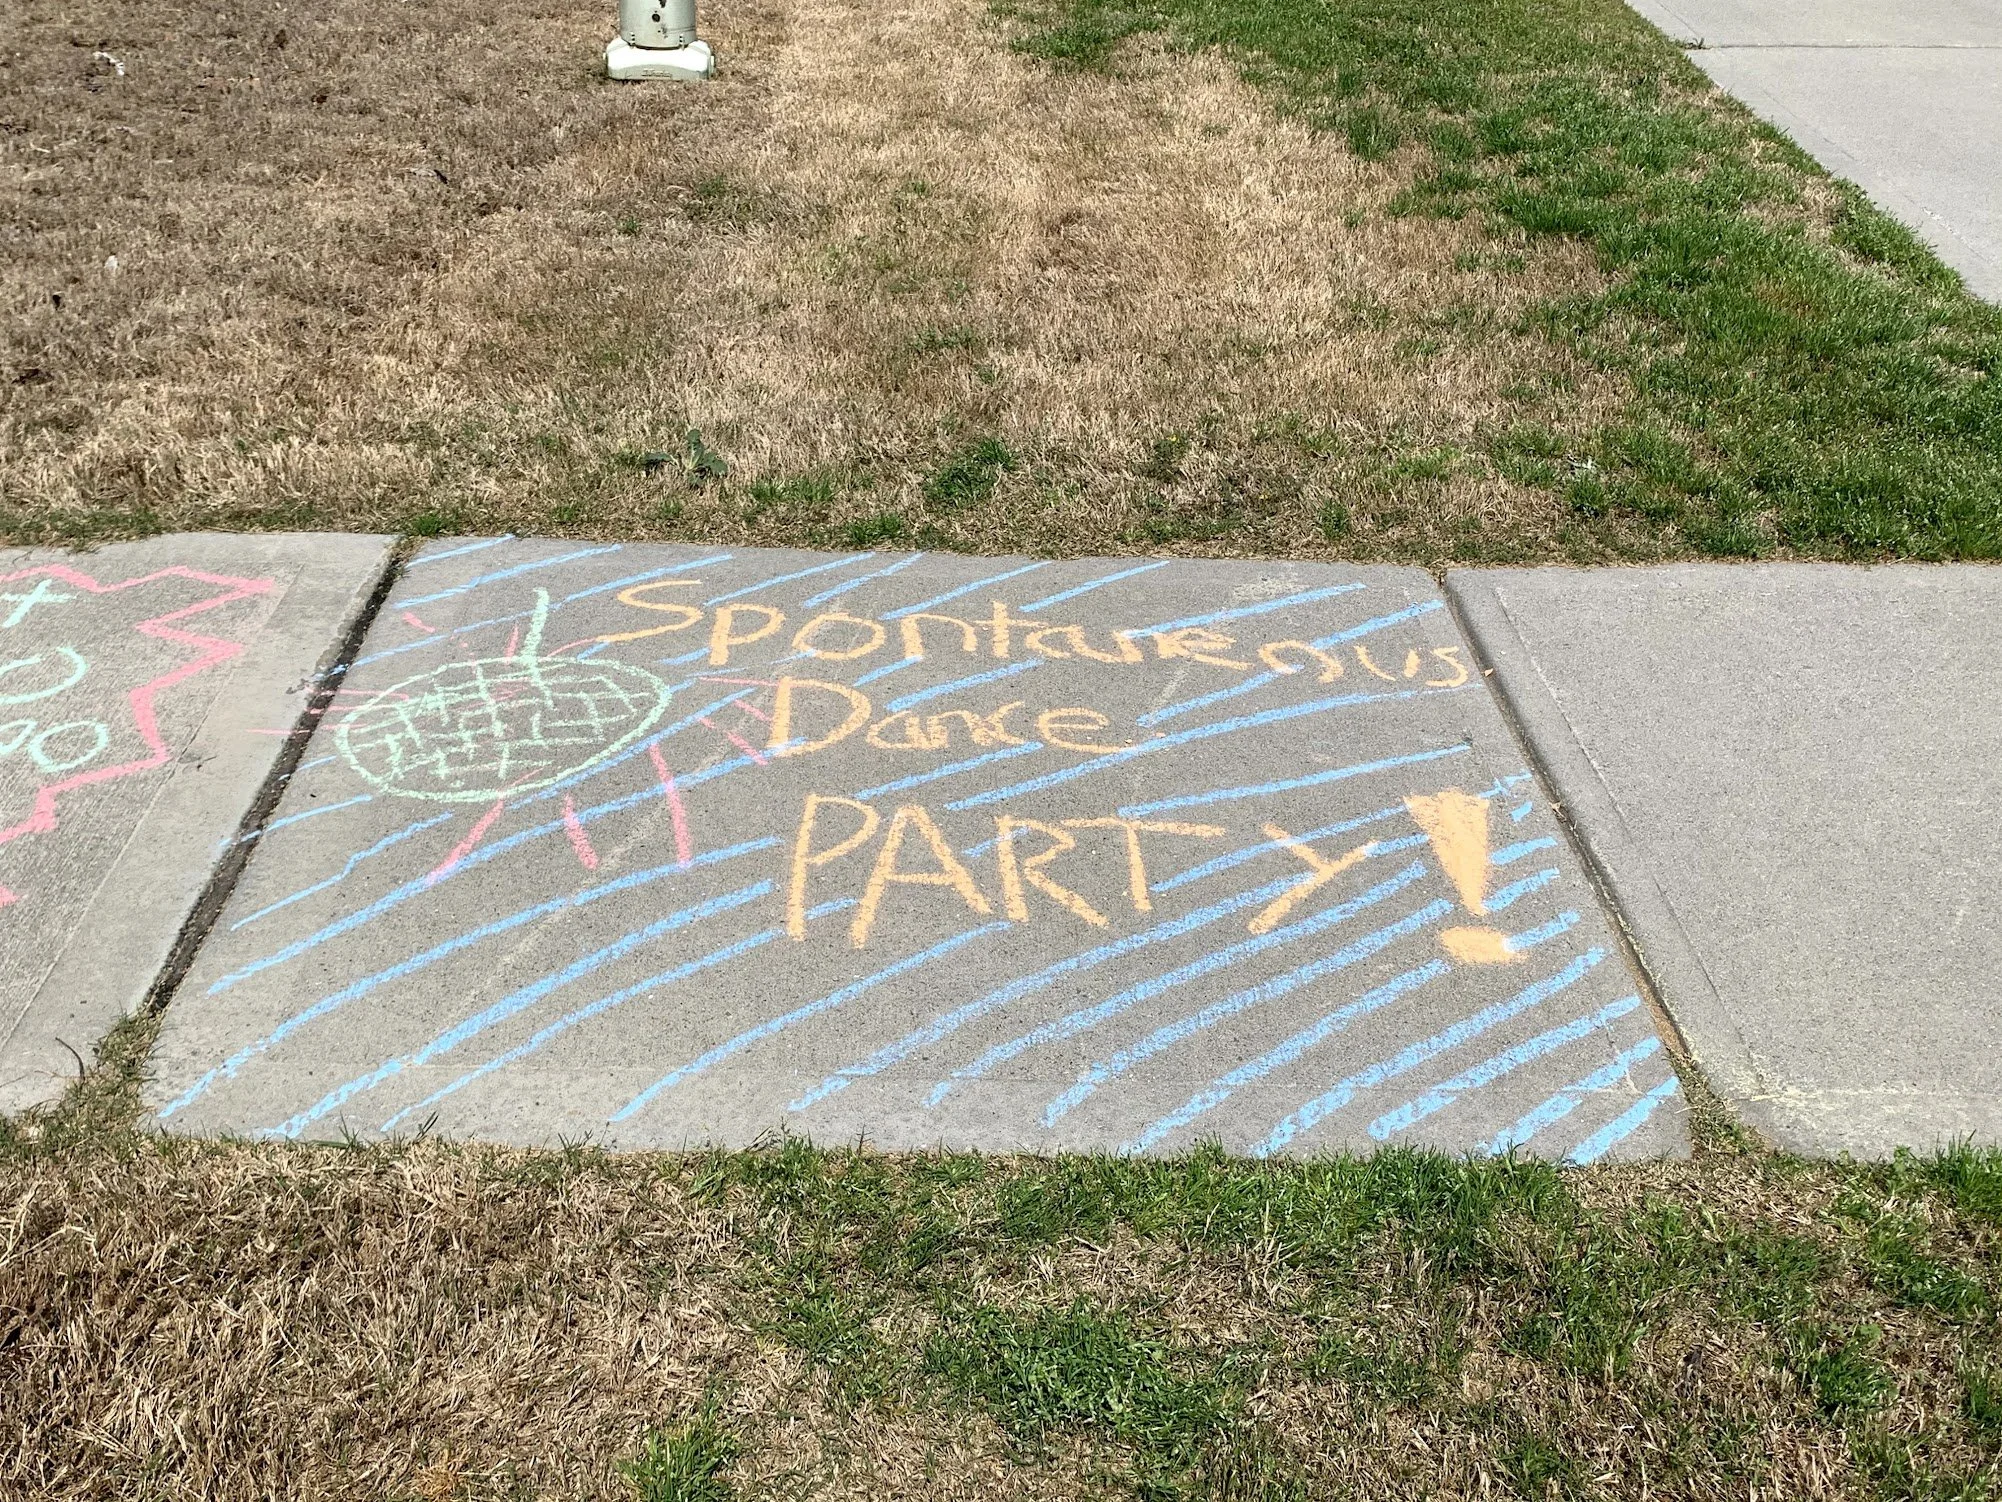 Spontaneous
Dance
PARTY!